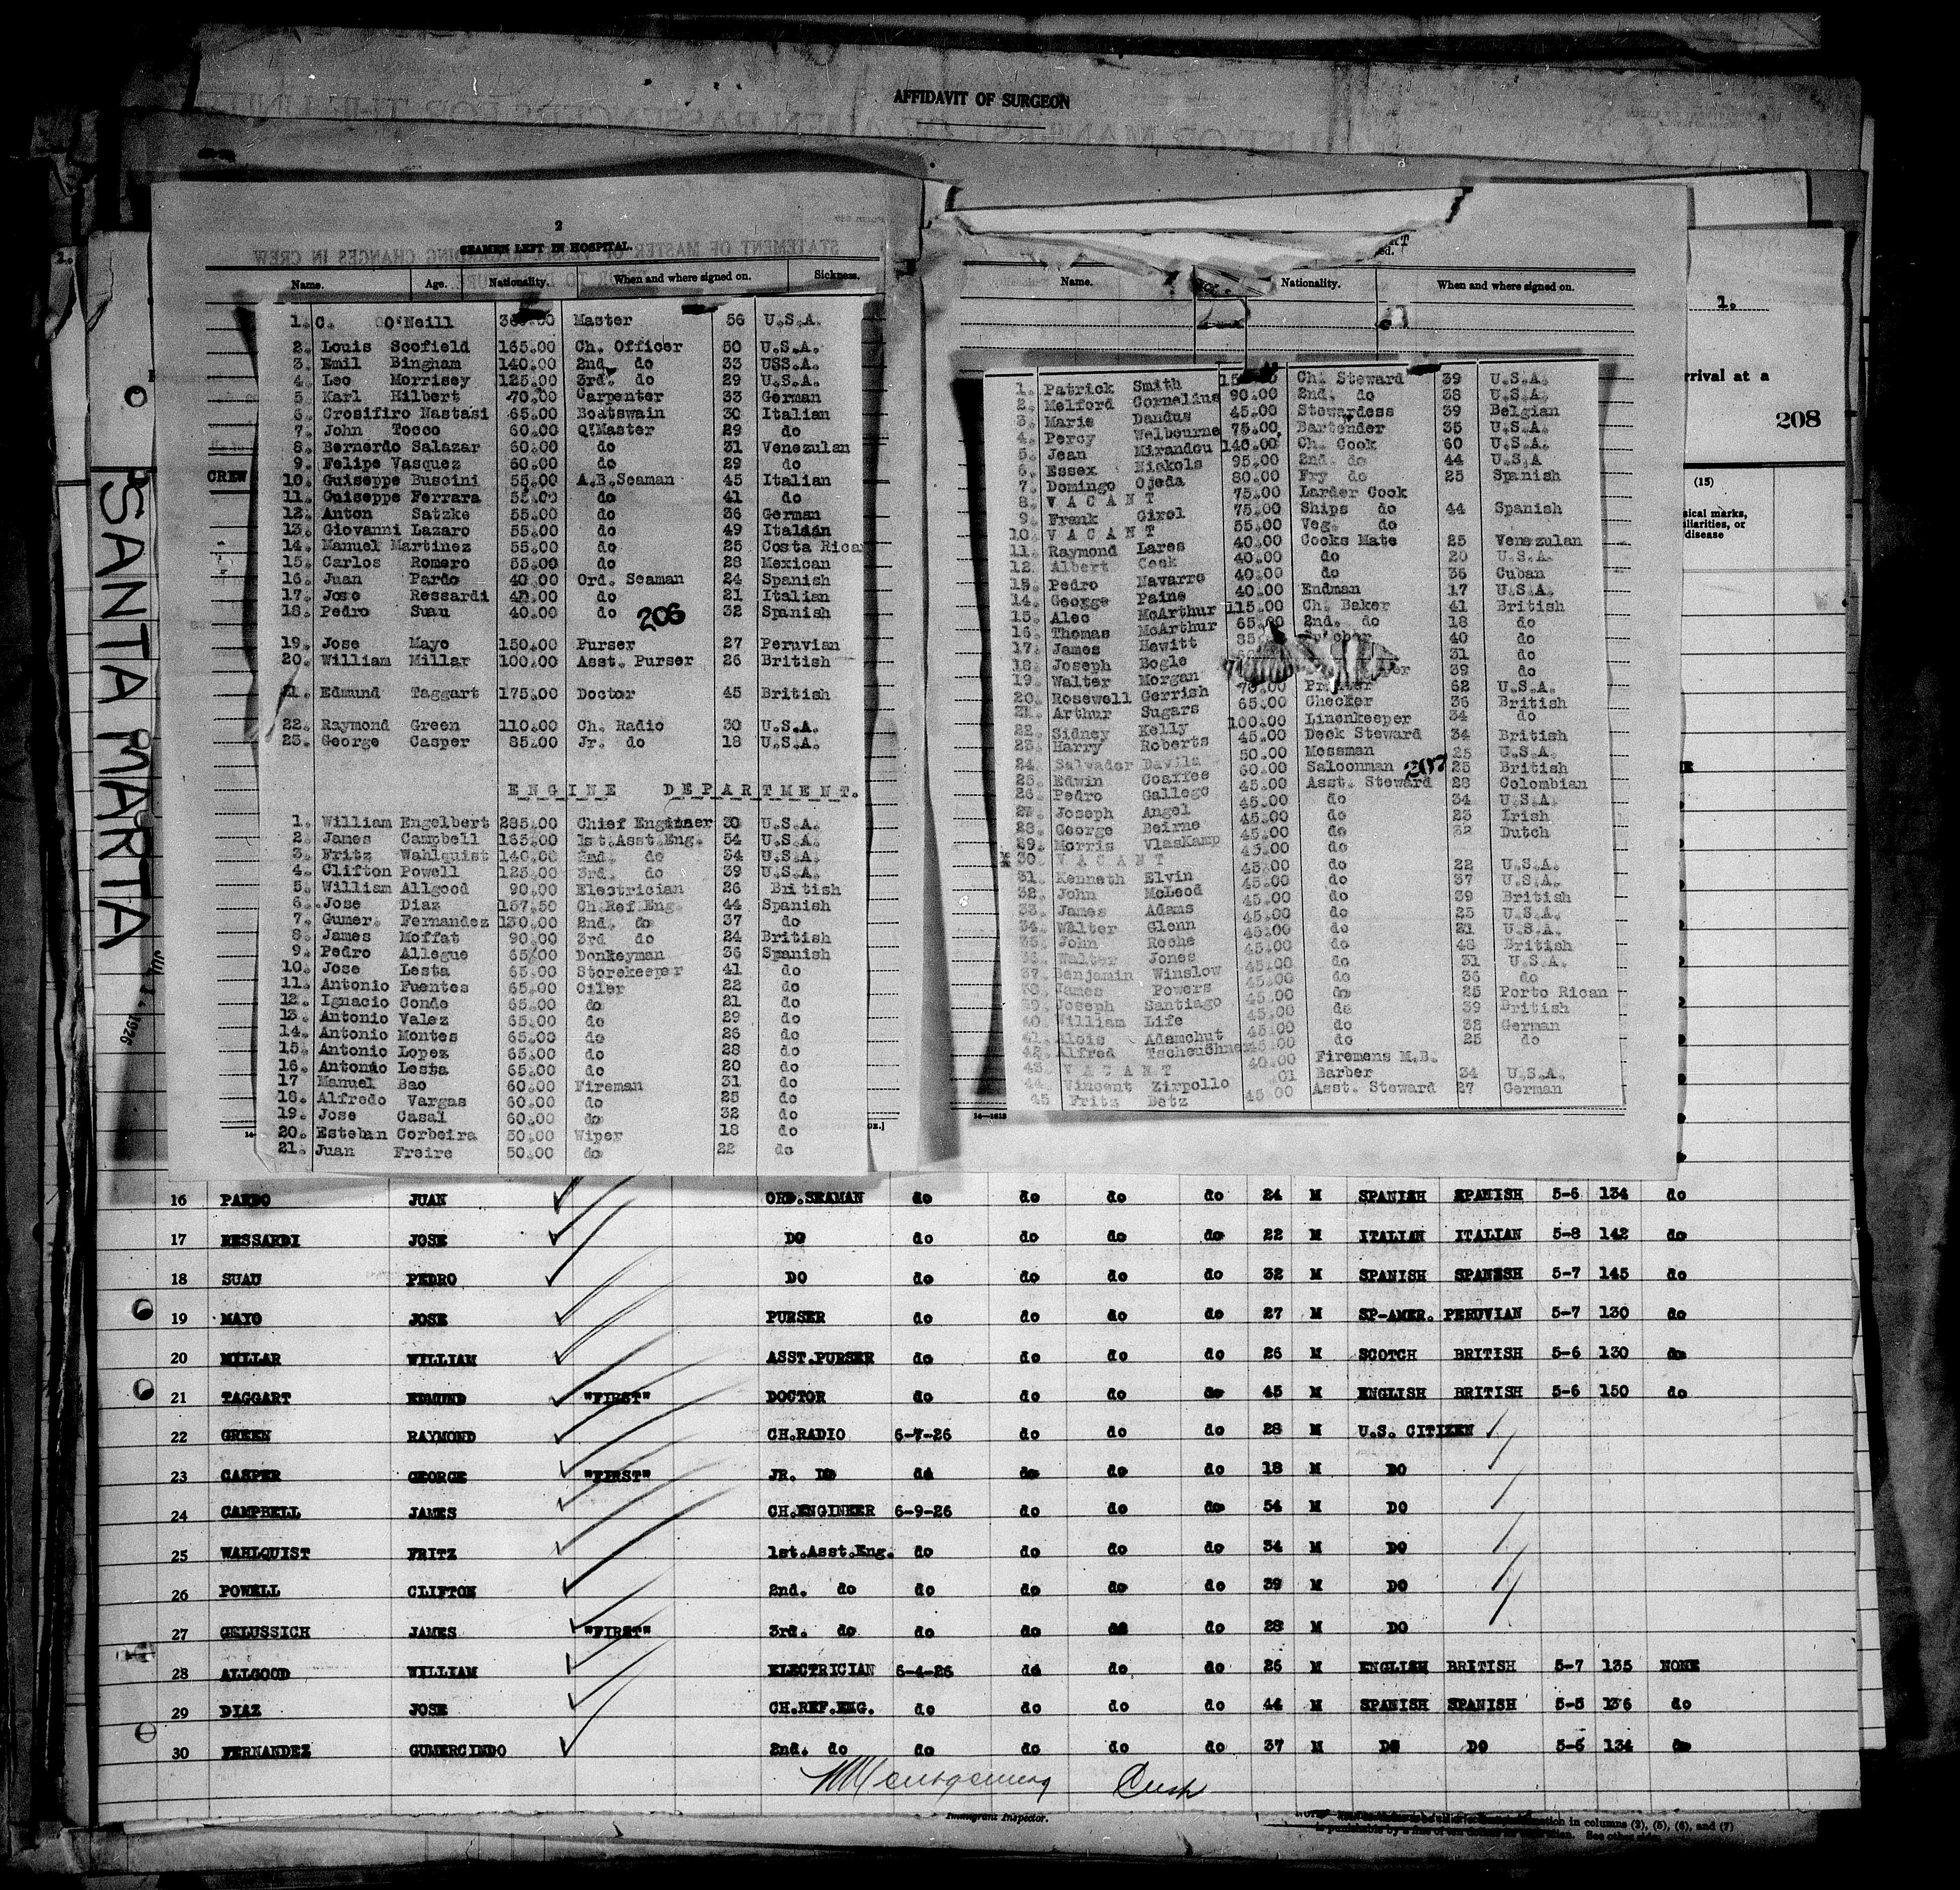 AFFIDAVIT OF SURGEON
2
SEAMEN LEFT IN HOSPITAL.
Name. Age. Nationality. When and where signed on. Sickness.
1. C. O'Neill Master 56 U.S.A.
2. Louis Scofield 165.00 Ch. Officer 50 U.S.A.
3. Emil Bingham 140.00 2nd. do 33 USS.A.
4. Leo Morrisey 125.00 3rd. do 29 U.S.A.
5. Karl Hilbert 70.00 Carpenter 33 German
6. Crosifiro Nastasi 65.00 Boatswain 30 Italian
7. John Tocco 60.00 Q'Master 29 do
8. Bernerdo Salazar 60.00 do 31 Venezulan
9. Felipe Vasquez 60.00 do 29 do
10. Guiseppe Buscini 55.00 A.B.Seaman 45 Italian
11. Guiseppe Ferrara 55.00 do 41 do
12. Anton Satzke 55.00 do 36 German
13. Giovanni Lazaro 55.00 do 49 Italian
14. Manuel Martinez 55.00 do 25 Costa Rican
15. Carlos Romero 55.00 do 28 Mexican
16. Juan Pardo 40.00 Ord. Seaman 24 Spanish
17. Jose Ressardi 40.00 do 21 Italian
18. Pedro Suau 40.00 do 32 Spanish
206
19. Jose Mayo 150.00 Purser 27 Peruvian
20. William Millar 100.00 Asst. Purser 26 British
21. Edmund Taggart 175.00 Doctor 45 British
22. Raymond Green 110.00 Ch. Radio 30 U.S.A.
23. George Casper 85.00 Jr. do 18 U.S.A.
ENGINE DEPARTMENT.
1. William Engelbert 285.00 Chief Engineer U.S.A.
2. James Campbell 165.00 1st.Asst.Eng. 54 U.S.A.
3. Fritz Wahlquist 140.00 2nd. do 34 U.S.A.
4. Clifton Powell 125.00 3rd. do 39 U.S.A.
5. William Allgood 90.00 Electrician 26 British
6. Jose Diaz 157.50 Ch.Ref.Eng. 44 Spanish
7. Gumer. Fernandez 130.00 2nd. do 37 do
8. James Moffat 90.00 3rd do 24 British
9. Pedro Allegue 65.00 Donkeyman 36 Spanish
10. Jose Lesta 65.00 Storekeeper 41 do
11. Antonio Fuentes 65.00 Oiler 22 do
12. Ignacio Conde 65.00 do 21 do
13. Antonio Valez 65.00 do 29 do
14. Antonio Montes 65.00 do 26 do
15. Antonio Lopez 65.00 do 28 do
16. Antonio Lesta 65.00 do 20 do
17 Manuel Bao 60.00 Fireman 31 do
18. Alfredo Vargas 60.00 do 25 do
19. Jose Casal 60.00 do 32 do
20. Esteban Corbeira 50.00 Wiper 18 do
21. Juan Freire 50.00 do 22 do
Name. Nationality. When and where signed on.
1. Patrick Smith Ch. Steward 39 U.S.A.
2. Melford Cornelius 90.00 2nd. do 38 U.S.A.
3. Marie Dandus 45.00 Stewardess 39 Belgian
4. Percy Welbourne 75.00 Bartender 35 U.S.A.
5. Jean Mirandou 140.00 Ch. Cook 60 U.S.A.
6. Essex Nickols 95.00 2nd. do 44 U.S.A
7. Domingo Ojeda 80.00 Fry do 25 Spanish
8. VACANT 75.00 Larder Cook
9. Frank Girol 75.00 Ships do 44 Spanish
10. VACANT 55.00 Veg. do
11. Raymond Lares 40.00 Cooks Mate 25 Venezulan
12. Albert Cook 40.00 do 20 U.S.A.
13. Pedro Navarro 40.00 do 36 Cuban
14. George Paine 40.00 Endman 17 U.S.A.
15. Alec McArthur 115.00 Ch. Baker 41 British
16. Thomas McArthur 65.00 2nd. do 18 do
17. James Hewitt 40 do
18. Joseph Bogle 31 do
19. Walter Morgan 39 do
20. Rosewell Gerrish Printer 62 U.S.A.
21. Arthur Sugars 65.00 Checker 36 British
22. Sidney Kelly 100.00 Linenkeeper 34 do
23. Harry Roberts 45.00 Deck Steward 34 British
24. Salvador Davila 50.00 Messman 25 U.S.A.
25. Edwin Coaffee 60.00 Saloonman 25 British
207
26. Pedro Gallego 45.00 Asst. Steward 28 Colombian
27. Joseph Angel 45.00 do 34 U.S.A.
28. George Beirne 45.00 do 23 Irish
29. Morris VlasKamp 45.00 do 32 Dutch
30. VACANT 45.00 do
31. Kenneth Elvin 45.00 do 22 U.S.A.
32. John McLeod 45.00 do 37 U.S.A.
33. James Adams 45.00 do 39 British
34. Walter Glenn 45.00 do 25 U.S.A.
35. John Roche 45.00 do 21 U.S.A.
36. Walter Jones 45.00 do 48 British
37. Benjamin Winslow 45.00 do 31 U.S.A.
38. James Powers 45.00 do 36 do
39. Joseph Santiago 45.00 do 25 Porto Rican
40. William Life 45.00 do 39 British
41. Alois Adamchut 45.00 do 32 German
42. Alfred Tscheuchner 45.00 do 25 do
43. VACANT 40.00 Firemens M.B.
44. Vincent Zirpollo .01 Barber 34 U.S.A.
45 Fritz Betz 45.00 Asst. Steward 27 German
1.
rrival at a
208
(15)
SANTA MARTA
JUL 1926
CREW
16 PARDO JUAN ORD.SEAMAN do do do do 24 M SPANISH SPANISH 5-6 134 do
17 RESSARDI JOSE DO do do do do 22 M ITALIAN ITALIAN 5-8 142 do
18 SUAU PEDRO DO do do do do 32 M SPANISH SPANISH 5-7 145 do
19 MAYO JOSE PURSER do do do do 27 M SP-AMER. PERUVIAN 5-7 130 do
20 MILLAR WILLIAM ASST.PURSER do do do do 26 M SCOTCH BRITISH 5-6 130 do
21 TAGGART EDMUND "FIRST" DOCTOR do do do do 45 M ENGLISH BRITISH 5-6 150 do
22 GREEN RAYMOND CH.RADIO 6-7-26 do do do 28 M U.S. CITIZEN
23 CASPER GEORGE "FIRST" JR. DO do do do do 18 M DO
24 CAMPBELL JAMES CH.ENGINEER 6-9-26 do do do 54 M DO
25 WAHLQUIST FRITZ 1st.Asst.Eng. do do do do 34 M DO
26 POWELL CLIFTON 2nd. do do do do do 39 M DO
27 GELUSSICH JAMES "FIRST" 3rd. do do do do do 28 M DO
28 ALLGOOD WILLIAM ELECTRICIAN 6-4-26 do do do 26 M ENGLISH BRITISH 5-7 135 NONE
29 DIAZ JOSE CH.REF.ENG. do do do do 44 M SPANISH SPANISH 5-5 136 do
30 FERNANDEZ GUMERCINDO 2nd. do do do do do 37 M DO DO 5-6 134 do
Immigrant Inspector.
in columns (2), (5), (6), and (7)